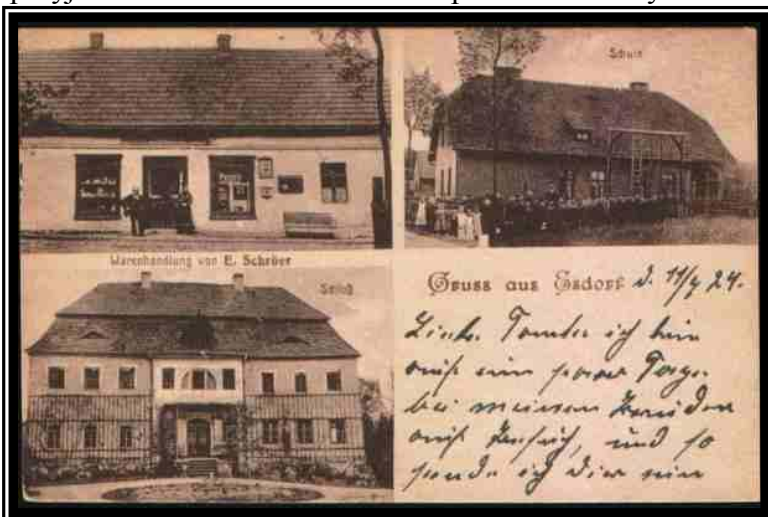 Schule
Warenhandlung von E. Schröer
Schloß
Gruss aus Esdorf d. 11/4 24.
Liebe Tante ich bin
auf ein paar Tage
bei meinen
auf Besuch, und so
sende ich dir eine